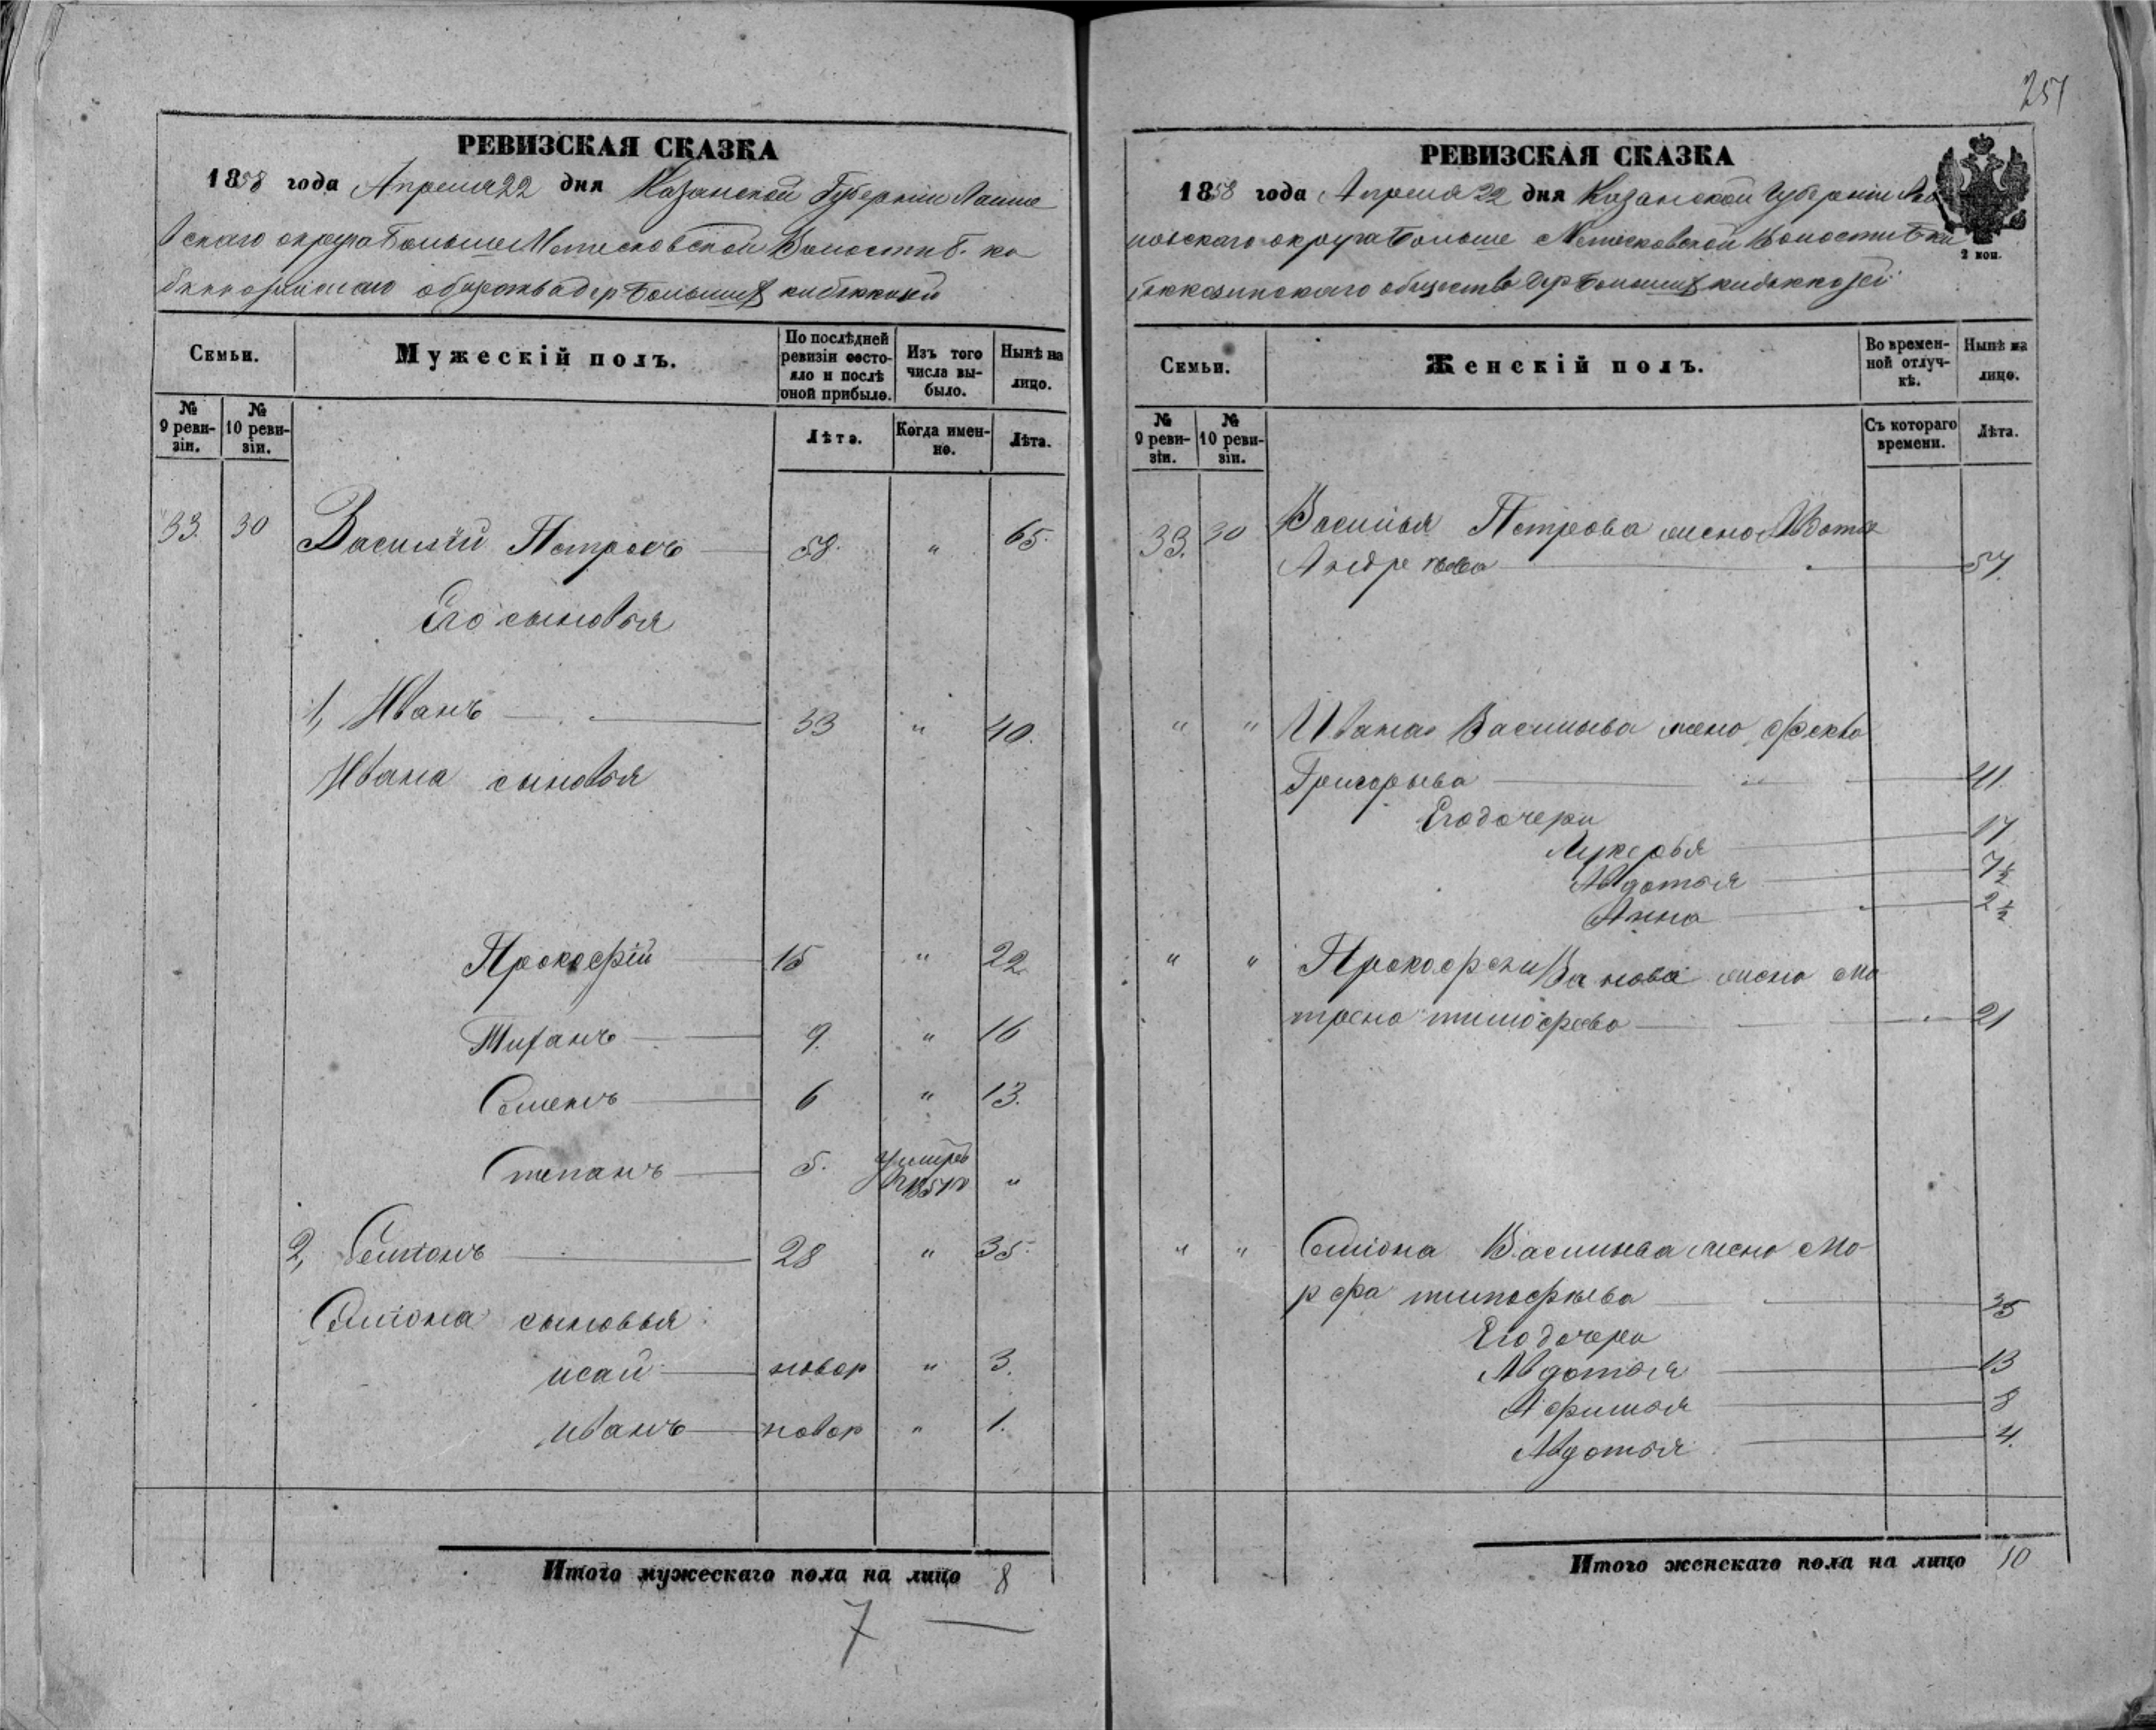 251
РЕВИЗСКАЯ СКАЗКА
1858 года Апреля 22 дня Казанской Губерніи Лаише
вскаго округа Больше Метесковской Волости Б. ки
бяккозинскаго общества дер Большихъ кибяккозей
Семьи.
Мужескій полъ.
По послѣдней ревизіи состояло и послѣ оной прибыло.
Изъ того числа выбыло.
Нынѣ на лицо.
№ 9 ревизіи.
№ 10 ревизіи.
Лѣта.
Когда именно.
Лѣта.
33. 30 Василій Петровъ 58. " 65.
Его сыновья
1, Иванъ 33 " 40.
Ивана сыновья
Прокофій 15 " 22
Тиханъ 9. " 16
Семенъ 6 " 13.
Степанъ 5. умеръ "
2, Семіонъ 28 " 35.
Семіона сыновья
исай новор " 3.
иванъ новор " 1.
Итого мужескаго пола на лицо 8
7 —
РЕВИЗСКАЯ СКАЗКА
1858 года Апреля 22 дня Казанской Губерніи
округа Больше Метесковской Волости Б ки
бяккозинскаго общества дер Большихъ кибяккозей
2 коп.
Семьи.
Женскій полъ.
Во временной отлучкѣ.
Нынѣ на лицо.
№ 9 ревизіи.
№ 10 ревизіи.
Съ котораго времени.
Лѣта.
33. 30 Василья Петрова жена Авдотья
Андреева 57.
" " Ивана Васильева жена Фекла
Григорьева 41.
Его дочери
Лукерья 17
Авдотья 7½
Анна 2½
" " Прокофья Иванова жена Ма
трена тимофеева 21
" " Семіона Васильева жена Ма-
рфа тимофыева 35
Его дочери
Авдотья 13
Афимья 8
Авдотья 4.
Итого женскаго пола на лицо 10